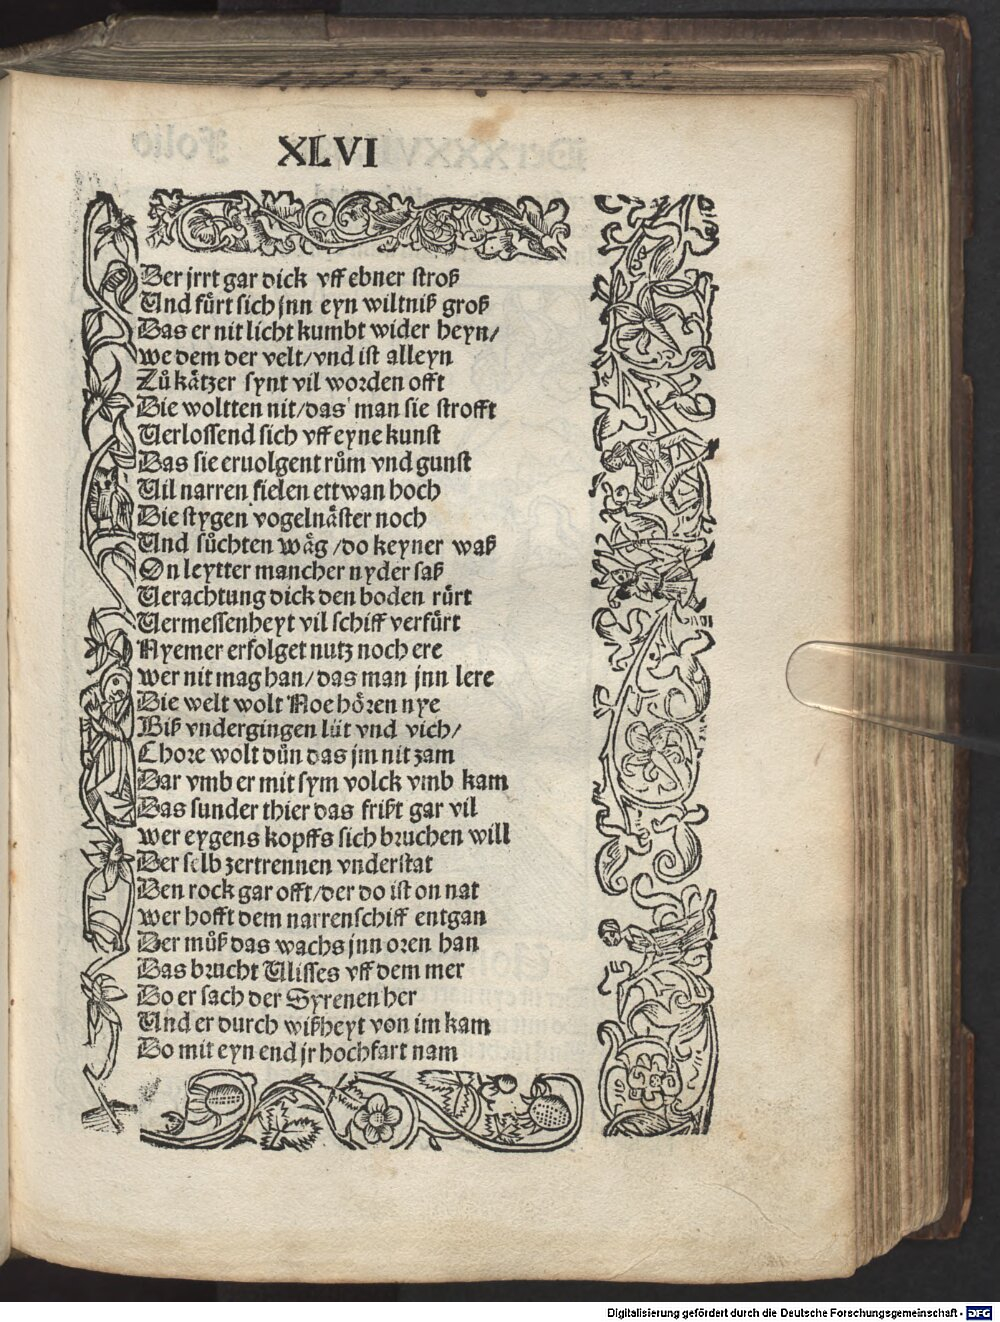 XLVI
Der jrrt gar dick vff ebner stroß
Und fürt sich jnn eyn wiltniß groß
Das er nit licht kumbt wider heyn/
we dem der velt/vnd ist alleyn
Zů kätzer synt vil worden offt
Die woltten nit/das man sie strofft
Verlossend sich vff eyne kunst
Das sie eruolgent rům vnd gunst
Vil narren fielen ettwan hoch
Die stygen vogelnäster noch
Und sůchten wäg/do keyner waß
On leytter mancher nyder saß
Verachtung dick den boden rürt
Vermessenheyt vil schiff verfürt
Nyemer erfolget nutz noch ere
wer nit mag han/das man jnn lere
Die welt wolt Noe hören nye
Biß vndergingen lüt vnd vich/
Chore wolt důn das jm nit zam
Dar vmb er mit sym volck vmb kam
Das sunder thier das frißt gar vil
wer eygens kopffs sich bruchen will
Der selb zertrennen vnderstat
Den rock gar offt/der do ist on nat
wer hofft dem narrenschiff entgan
Der můß das wachs jnn oren han
Das brucht Ulisses vff dem mer
Do er sach der Syrenen her
Und er durch wißheyt von im kam
Do mit eyn end jr hochfart nam
Digitalisierung gefördert durch die Deutsche Forschungsgemeinschaft - DFG